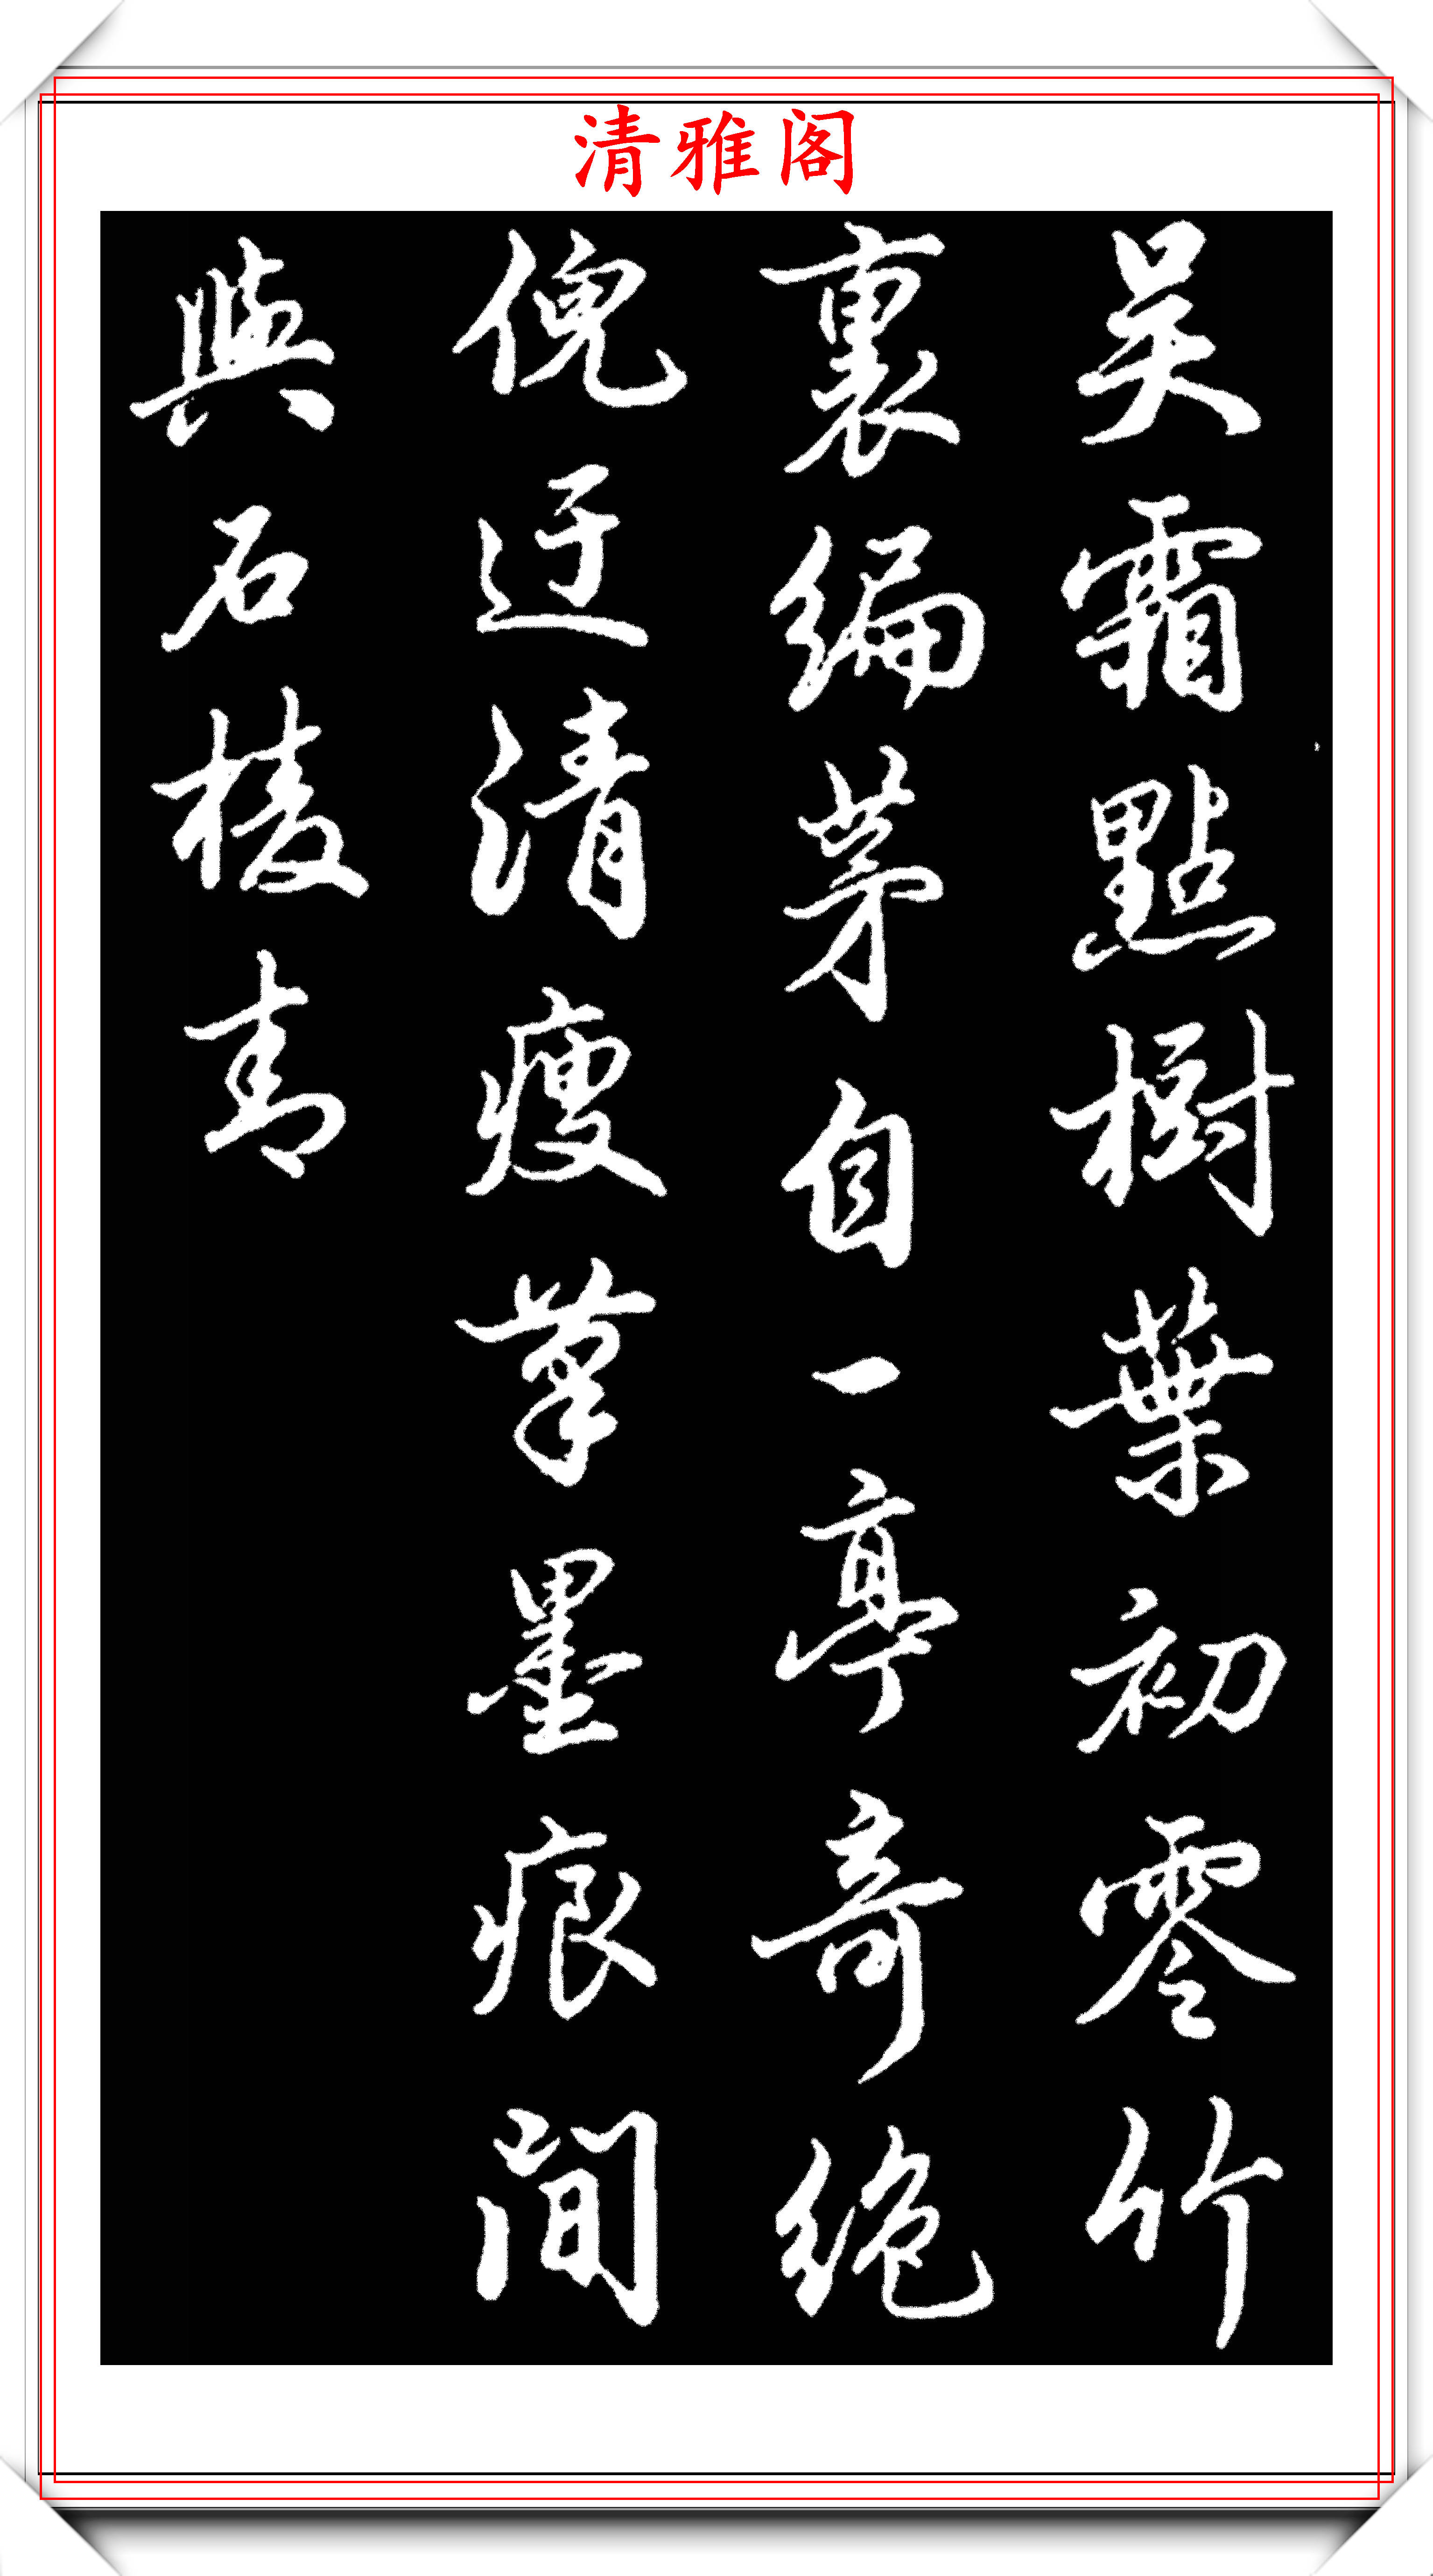 清雅阁
吴霜點樹葉初零竹
裏編茅自一亭奇絶
倪迂清瘦筆墨痕間
與石棱青